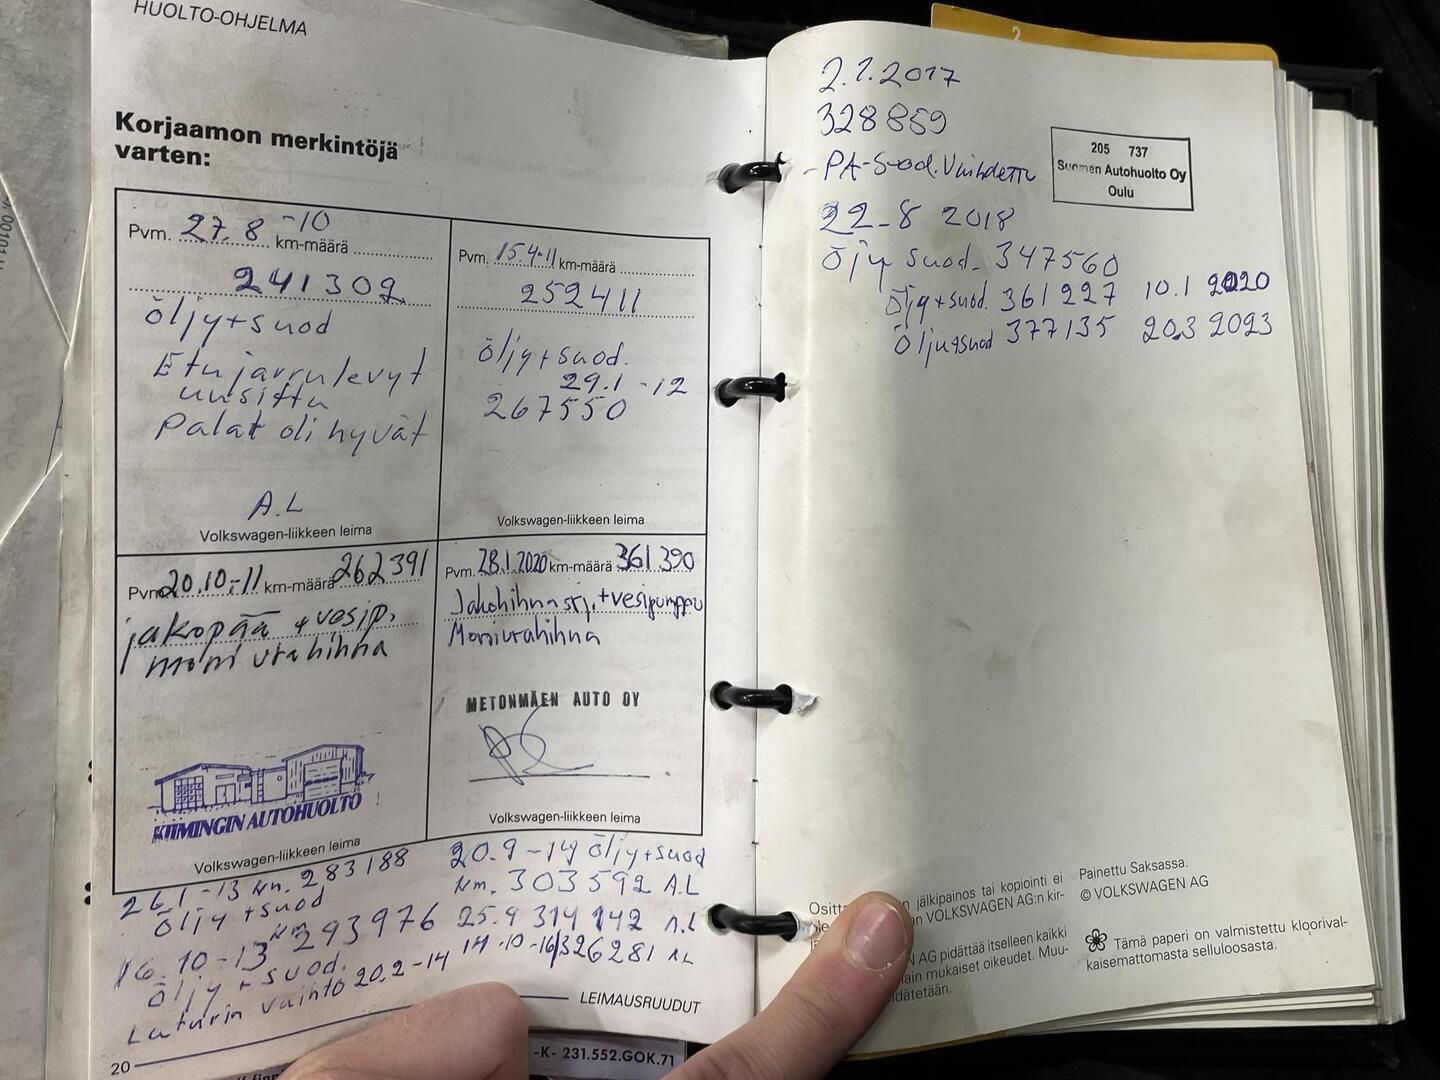 HUOLTO-OHJELMA
Korjaamon merkintöjä
varten:
Pvm. 27.8 -10 km-määrä
241302
öljy+suod
Etujarrulevyt
uusittu
Palat oli hyvät
A.L
Volkswagen-liikkeen leima
Pvm. 15.4-11 km-määrä
252411
öljy+suod.
29.1 -12
267550
Volkswagen-liikkeen leima
Pvm 20.10.-11 km-määrä 262391
jakopää + vesip.
moniurahihna
KIIMINGIN AUTOHUOLTO
Volkswagen-liikkeen leima
Pvm. 28.1.2020 km-määrä 361 390
Jakohihnasrj. + vesipumppu
Moniurahihna
METONMÄEN AUTO OY
Volkswagen-liikkeen leima
26.1-13 km. 283188
öljy + suod
16.10-13 km 293976
öljy + suod.
Laturin vaihto 20.2-14
20.9-14 öljy+suod
km. 303592 A.L
25.9 314142 A.L
14-10-16/326281 A.L
LEIMAUSRUUDUT
20
-K- 231.552.GOK.71
2
2.2.2017
328859
-PA-Suod. Vaihdettu
205 737
Suomen Autohuolto Oy
Oulu
22-8 2018
öljy suod. 347560
öljy+suod. 361227 10.1 2020
öljy+suod 377135 20.3 2023
Painettu Saksassa.
© VOLKSWAGEN AG
Ositta n jälkipainos tai kopiointi ei
an VOLKSWAGEN AG:n kir-
AG pidättää itselleen kaikki
ain mukaiset oikeudet. Muu-
idätetään.
Tämä paperi on valmistettu kloorival-
kaisemattomasta selluloosasta.